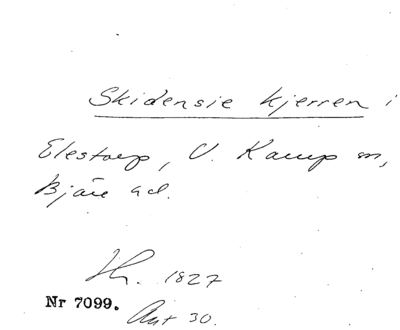 Skidensie kjerren i
Elestorp, V. Karup sn,
Bjäre hd.
Hr. 1827
Nr 7099.
Ant 30.